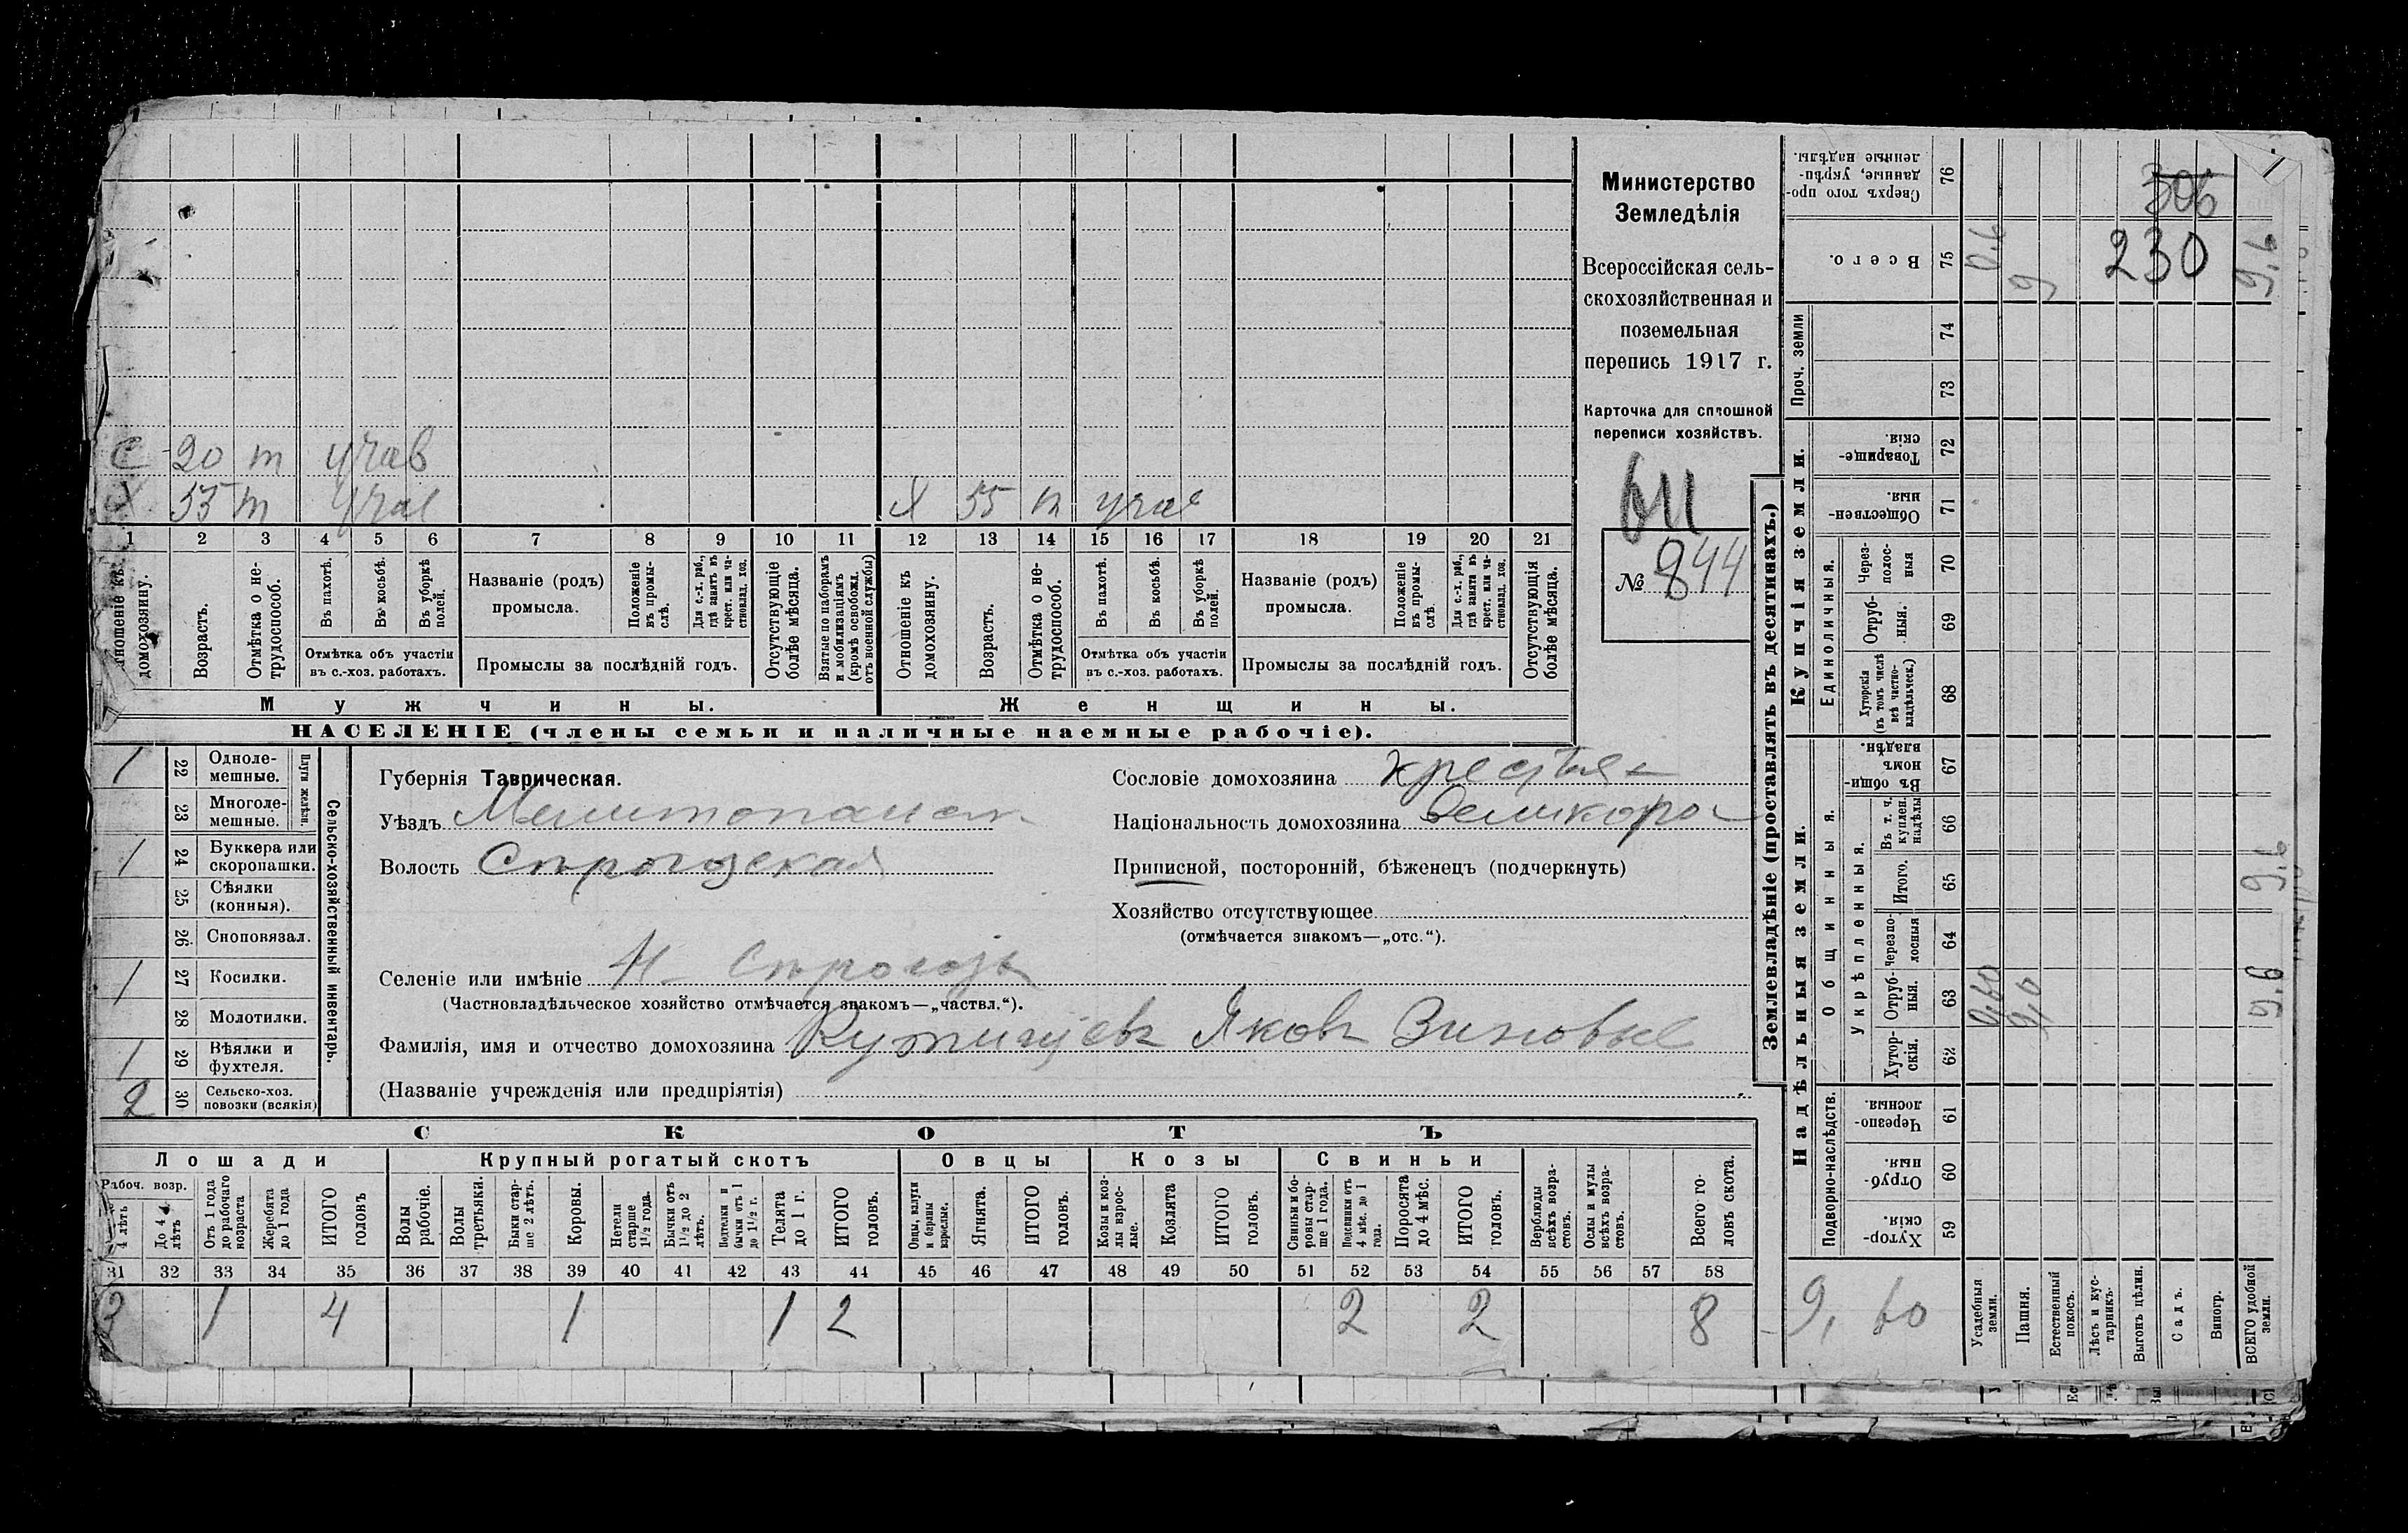 306
230
Министерство
Земледѣлія
Всероссійская сель-
скохозяйственная и
поземельная
перепись 1917 г.
Карточка для сплошной
переписи хозяйствъ.
611
№ 844
С 20 т учав
Х 53 т учав
Х 55 т учав
1 2 3 4 5 6 7 8 9 10 11 12 13 14 15 16 17 18 19 20 21
домохозяину.
Возрастъ.
Отмѣтка о не-
трудоспособ.
Въ пахотѣ.
Въ косьбѣ.
Въ уборкѣ
полей.
Отмѣтка объ участіи
въ с.-хоз. работахъ.
Названіе (родъ)
промысла.
Положеніе
въ промы-
слѣ.
Для с.-х. раб.,
гдѣ занятъ въ
крест. или ча-
стновлад. хоз.
Промыслы за послѣдній годъ.
Отсутствующіе
болѣе мѣсяца.
Взятые по наборамъ
и мобилизаціямъ
(кромѣ освобожд.
отъ военной службы)
Отношеніе къ
домохозяину.
Возрастъ.
Отмѣтка о не-
трудоспособ.
Въ пахотѣ.
Въ косьбѣ.
Въ уборкѣ
полей.
Отмѣтка объ участіи
въ с.-хоз. работахъ.
Названіе (родъ)
промысла.
Положеніе
въ промы-
слѣ.
Для с.-х. раб.,
гдѣ занята въ
крест. или ча-
стновлад. хоз.
Промыслы за послѣдній годъ.
Отсутствующія
болѣе мѣсяца.
Мужчины.
Женщины.
НАСЕЛЕНІЕ (члены семьи и наличные наемные рабочіе).
Сельско-хозяйственный инвентарь.
Плуги желѣзн.
1 22 Одноле-
мешные.
23 Многоле-
мешные.
1 24 Буккера или
скоропашки.
25 Сѣялки
(конныя).
26 Сноповязал.
1 27 Косилки.
28 Молотилки.
1 29 Вѣялки и
фухтеля.
2 30 Сельско-хоз.
повозки (всякія)
Губернія Таврическая.
Уѣздъ
Волость
Селеніе или имѣніе
(Частновладѣльческое хозяйство отмѣчается знакомъ—„частвл.“).
Фамилія, имя и отчество домохозяина Яковъ
(Названіе учрежденія или предпріятія)
Сословіе домохозяина
Національность домохозяина
Приписной, посторонній, бѣженецъ (подчеркнуть)
Хозяйство отсутствующее
(отмѣчается знакомъ—„отс.“).
СКОТЪ
Лошади
Крупный рогатый скотъ
Овцы
Козы
Свиньи
Рабоч. возр.
4 лѣтъ
До 4
лѣтъ
Отъ 1 года
до рабочаго
возраста
Жеребята
до 1 года
ИТОГО
головъ
Волы
рабочіе.
Волы
третьяки.
Быки стар-
ше 2 лѣтъ.
Коровы.
Нетели
старше
1½ года.
Бычки отъ
1½ до 2
лѣтъ.
Подтелки и
бычки отъ 1
до 1½ г.
Телята
до 1 г.
ИТОГО
головъ.
Овцы, валухи
и бараны
взрослые.
Ягнята.
ИТОГО
головъ.
Козы и коз-
лы взрос-
лые.
Козлята
ИТОГО
головъ.
Свиньи и бо-
ровы стар-
ше 1 года.
Подсвинки отъ
4 мѣс. до 1
года.
Поросята
до 4 мѣс.
ИТОГО
головъ.
Верблюды
всѣхъ возра-
стовъ.
Ослы и мулы
всѣхъ возра-
стовъ.
Всего го-
ловъ скота.
31 32 33 34 35 36 37 38 39 40 41 42 43 44 45 46 47 48 49 50 51 52 53 54 55 56 57 58
3 1 4 1 1 2 2 2 8
Землевладѣніе (проставлять въ десятинахъ.)
Надѣльныя земли.
Купчія земли.
Проч. земли
Подворно-наслѣдств.
Общинныя.
Укрѣпленныя.
Единоличныя.
Сверхъ того про-
данные, укрѣп-
ленные надѣлы.
76
Всего.
75
0,6
9
9,6
74
73
Товарище-
скія.
72
Обществен-
ныя.
71
Через-
полос-
ныя
70
Отруб-
ныя.
69
Хуторскія
(въ томъ числѣ
всѣ частно-
владѣльческ.)
68
Въ общин-
номъ
владѣн.
67
Въ т. ч.
куплен.
надѣлы
66
Итого.
65
9,6
Черезпо-
лосныя
64
Отруб-
ныя.
63
0,60
9,0
9,6
Хутор-
скія.
62
Черезпо-
лосныя.
61
Отруб-
ныя.
60
Хутор-
скія.
59
9,60
Усадебныя
земли.
Пашня.
Естественный
покосъ.
Лѣсъ и кус-
тарникъ.
Выгонъ цѣлин.
Садъ.
Виногр.
ВСЕГО удобной
земли.